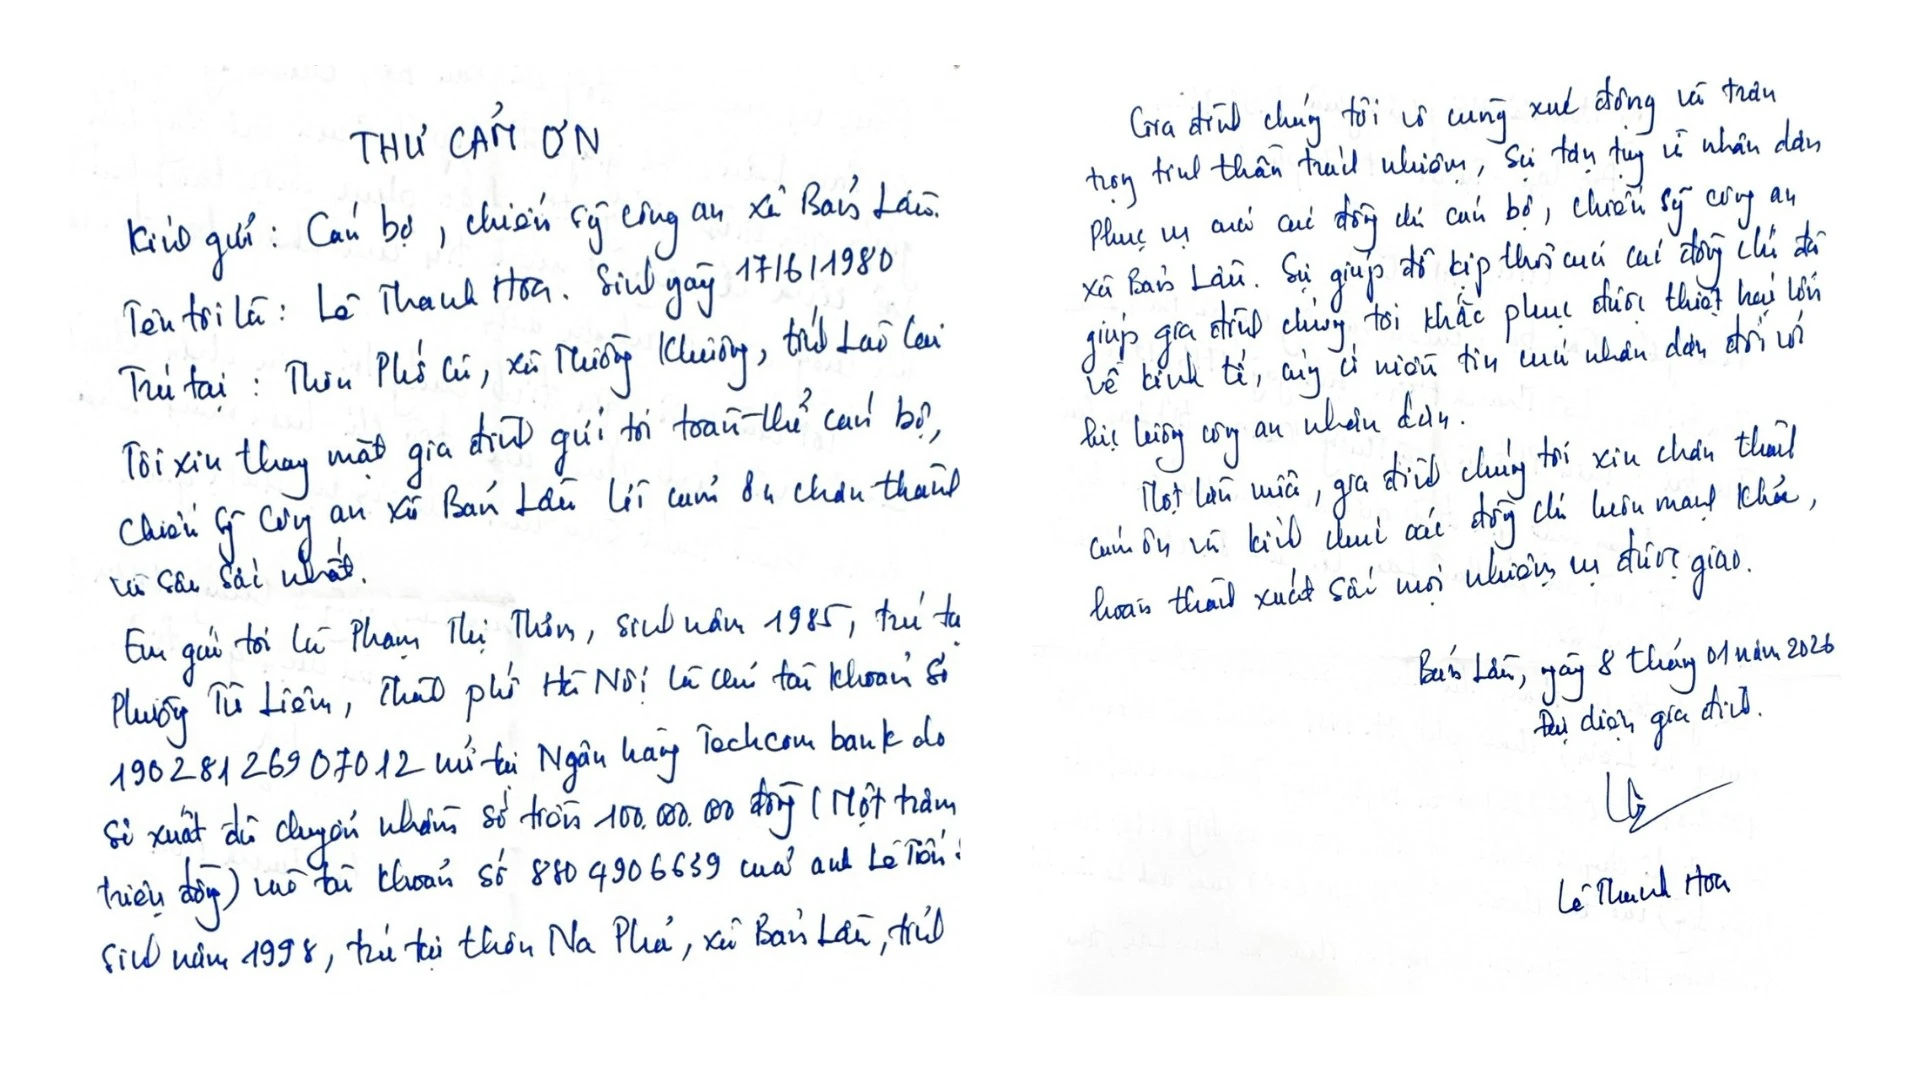 THƯ CẢM ƠN
Kính gửi: Cán bộ, chiến sỹ công an xã Bản Lầu.
Tên tôi là: Lê Thanh Hoa. Sinh ngày 17/6/1980
Trú tại: Thôn Phố Cũ, xã Mường Khương, tỉnh Lào Cai
Tôi xin thay mặt gia đình gửi tới toàn thể cán bộ,
chiến sỹ công an xã Bản Lầu lời cảm ơn chân thành
và sâu sắc nhất.
Em gái tôi là Phạm Thị Thơm, sinh năm 1985, trú tạ
Phường Từ Liêm, Thành phố Hà Nội là chủ tài khoản số
19028126907012 mở tại Ngân hàng Techcom bank do
sơ xuất đã chuyển nhầm số tiền 100.000.000 đồng (Một trăm
triệu đồng) vào tài khoản số 8804906639 của anh Lê Tiến
sinh năm 1998, trú tại thôn Na Phả, xã Bản Lầu, tỉnh
Gia đình chúng tôi vô cùng xúc động và trân
trọng tinh thần trách nhiệm, sự tận tụy vì nhân dân
phục vụ của các đồng chí cán bộ, chiến sỹ công an
xã Bản Lầu. Sự giúp đỡ kịp thời của các đồng chí đã
giúp gia đình chúng tôi khắc phục được thiệt hại lớn
về kinh tế, củng cố niềm tin của nhân dân đối với
lực lượng công an nhân dân.
Một lần nữa, gia đình chúng tôi xin chân thành
cảm ơn và kính chúc các đồng chí luôn mạnh khỏe,
hoàn thành xuất sắc mọi nhiệm vụ được giao.
Bản Lầu, ngày 8 tháng 01 năm 2026
Đại diện gia đình.
Lê Thanh Hoa